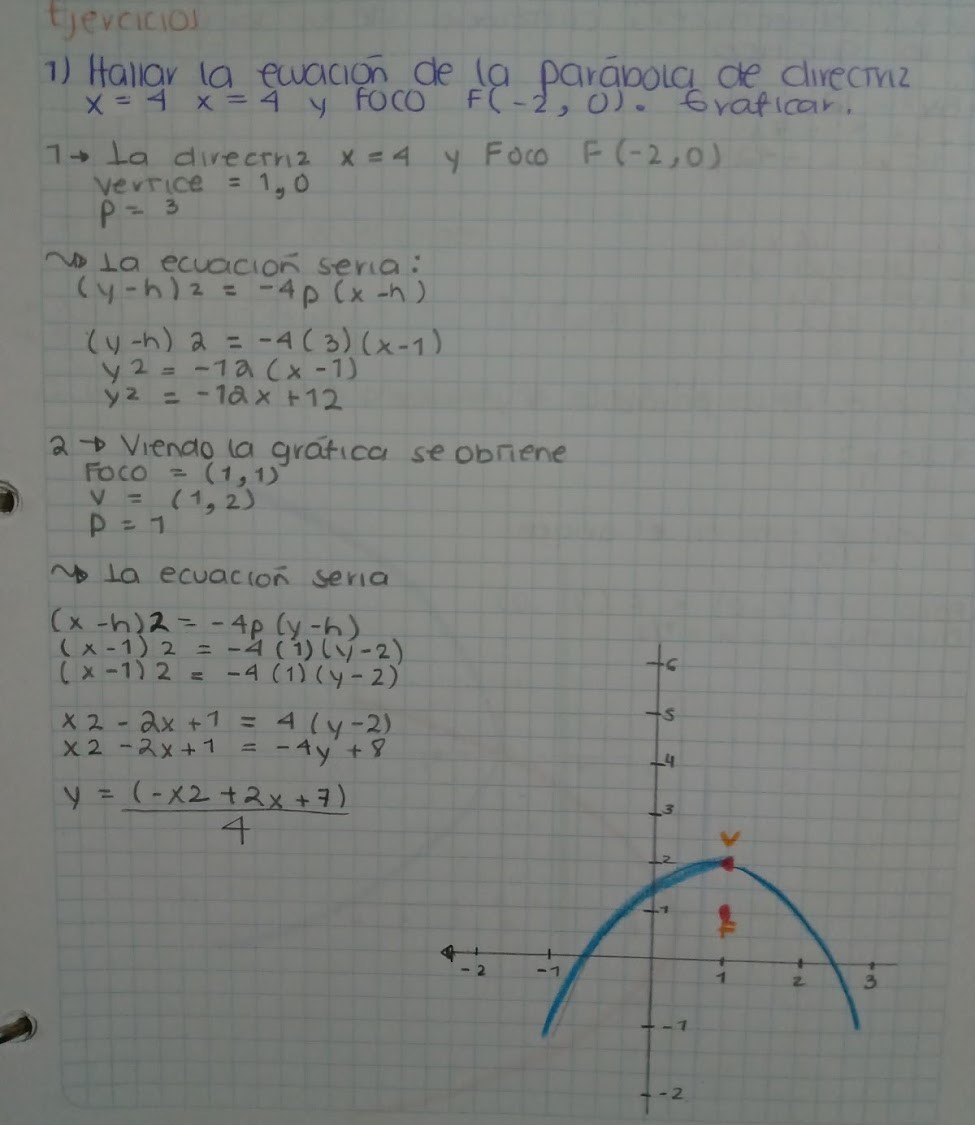 Ejercicios
1) Hallar la ecuación de la parábola de directriz
x = 4 x = 4 y Foco F(-2, 0). Graficar.
1→ La directriz x = 4 y Foco F(-2,0)
vertice = 1,0
P = 3
~▷ La ecuación seria:
(y-h)2 = -4p(x-h)
(y-h)2 = -4(3)(x-1)
y2 = -12(x-1)
y2 = -12x+12
2 → Viendo la gráfica se obtiene
Foco = (1,1)
V = (1,2)
P = 1
~▷ La ecuación seria
(x-h)2 = -4p(y-h)
(x-1)2 = -4(1)(y-2)
(x-1)2 = -4(1)(y-2)
x2 - 2x+1 = 4(y-2)
x2 -2x+1 = -4y+8
y = (-x2+2x+7)
4
6
5
4
3
V
2
1
F
-2 -1 1 2 3
-1
-2